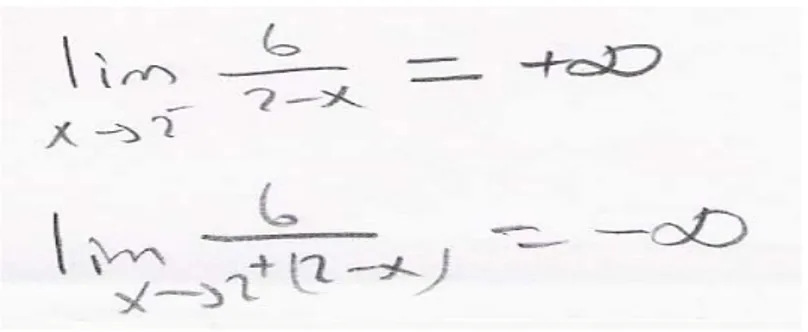 lim x→2⁻ 6/(2-x) = +∞
lim x→2⁺ 6/(2-x) = -∞